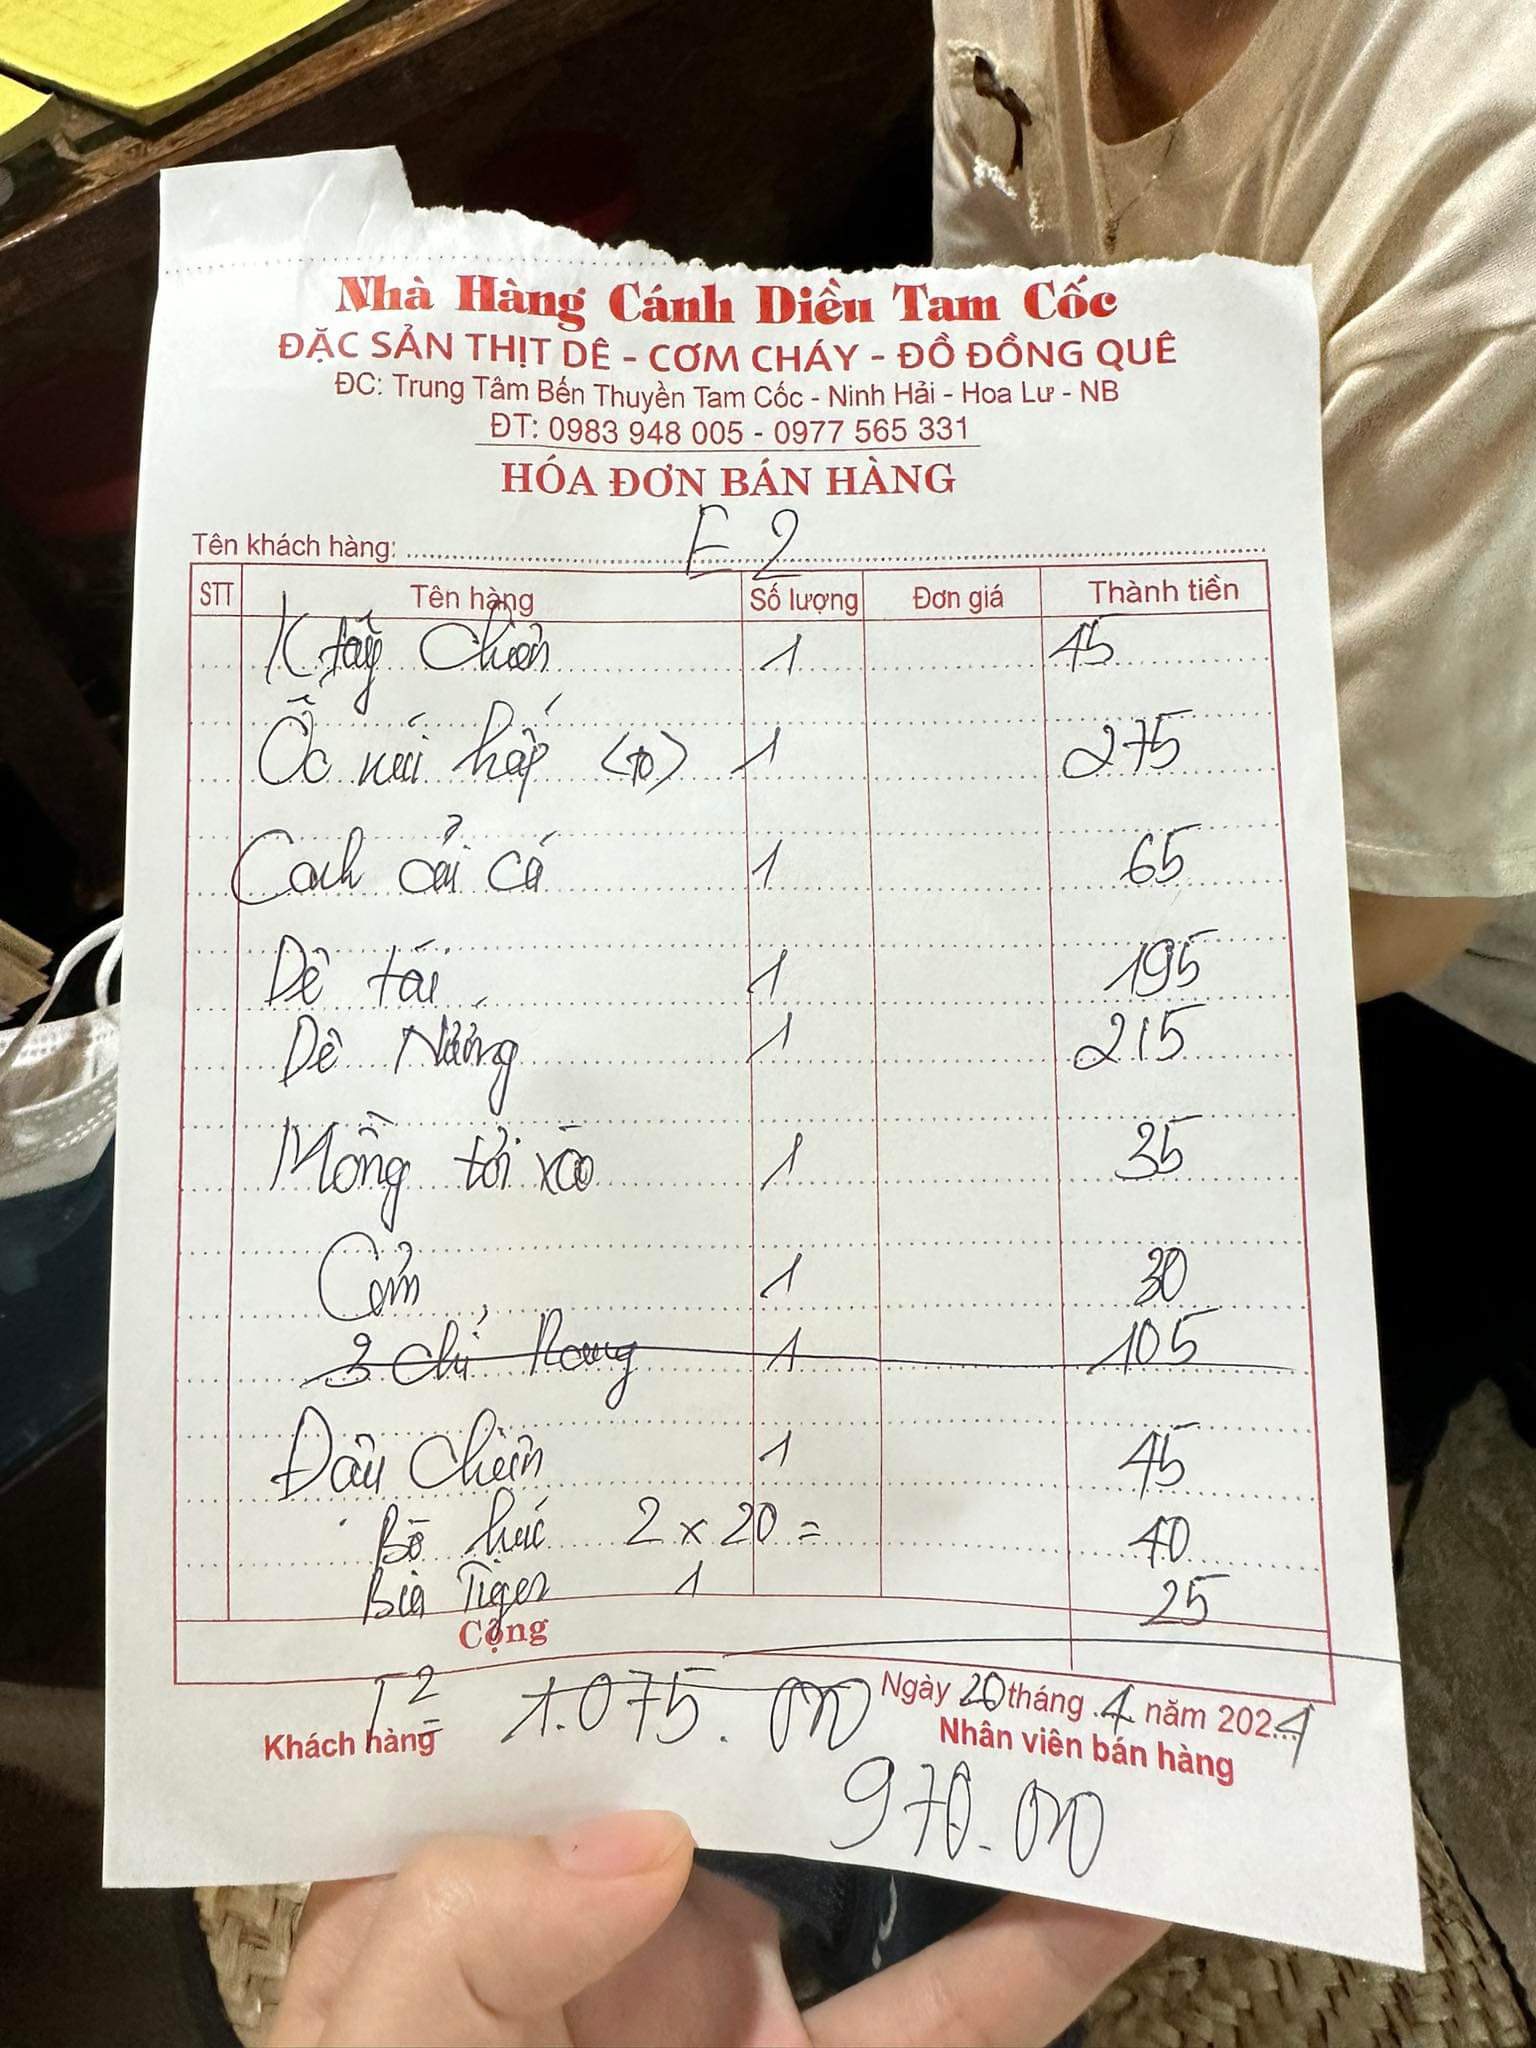 Nhà Hàng Cánh Diều Tam Cốc
ĐẶC SẢN THỊT DÊ - CƠM CHÁY - ĐỒ ĐỒNG QUÊ
ĐC: Trung Tâm Bến Thuyền Tam Cốc - Ninh Hải - Hoa Lư - NB
ĐT: 0983 948 005 - 0977 565 331
HÓA ĐƠN BÁN HÀNG
Tên khách hàng: E2
STT Tên hàng Số lượng Đơn giá Thành tiền
K tây Chiên 1 45
Ốc núi hấp 1 275
Canh cải cá 1 65
Dê tái 1 195
Dê Nướng 1 215
Mồng tơi xào 1 35
Cơm 1 30
3 chỉ Rang 1 105
Đậu Chiên 1 45
Bò húc 2 x 20 = 40
Bia Tiger 1 25
Cộng
T2 1.075.000
Ngày 20 tháng 4 năm 2024
Khách hàng Nhân viên bán hàng
970.000